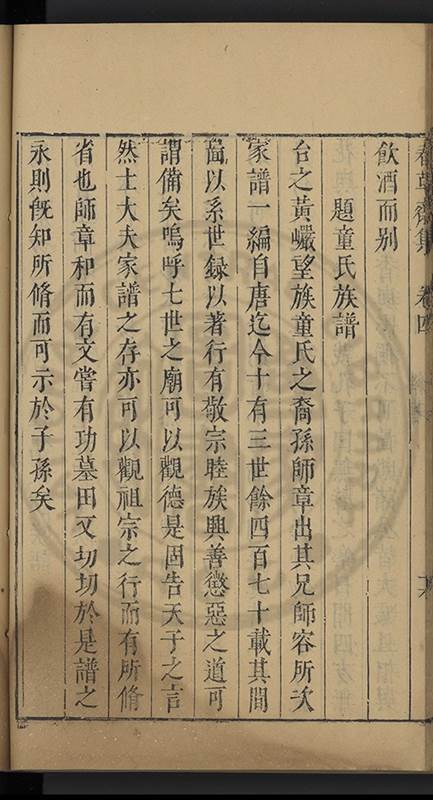 春草齋集 卷四
飲酒而别
題童氏族譜
台之黃巖望族童氏之裔孫師章出其兄師容所次
家譜一編自唐迄今十有三世餘四百七十載其間
啚以系世録以著行有敬宗睦族興善懲惡之道可
謂備矣嗚呼七世之廟可以觀德是固告天子之言
然士大夫家譜之存亦可以觀祖宗之行而有所脩
省也師章和而有文嘗有功墓田又切切於是譜之
永則旣知所脩而可示於子孫矣